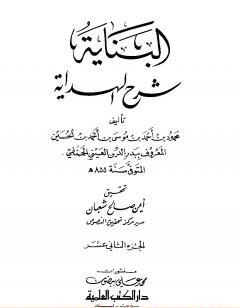 البناية
شرح الهداية
تأليف
محمود بن أحمد بن موسى بن أحمد بن الحسين
المعروف ببدر الدين العيني الحنفي
المتوفى سنة ٨٥٥ هـ
تحقيق
أيمن صالح شعبان
مدير مركز تحقيق النصوص
الجزء الثاني عشر
منشورات
محمد علي بيضون
دار الكتب العلمية